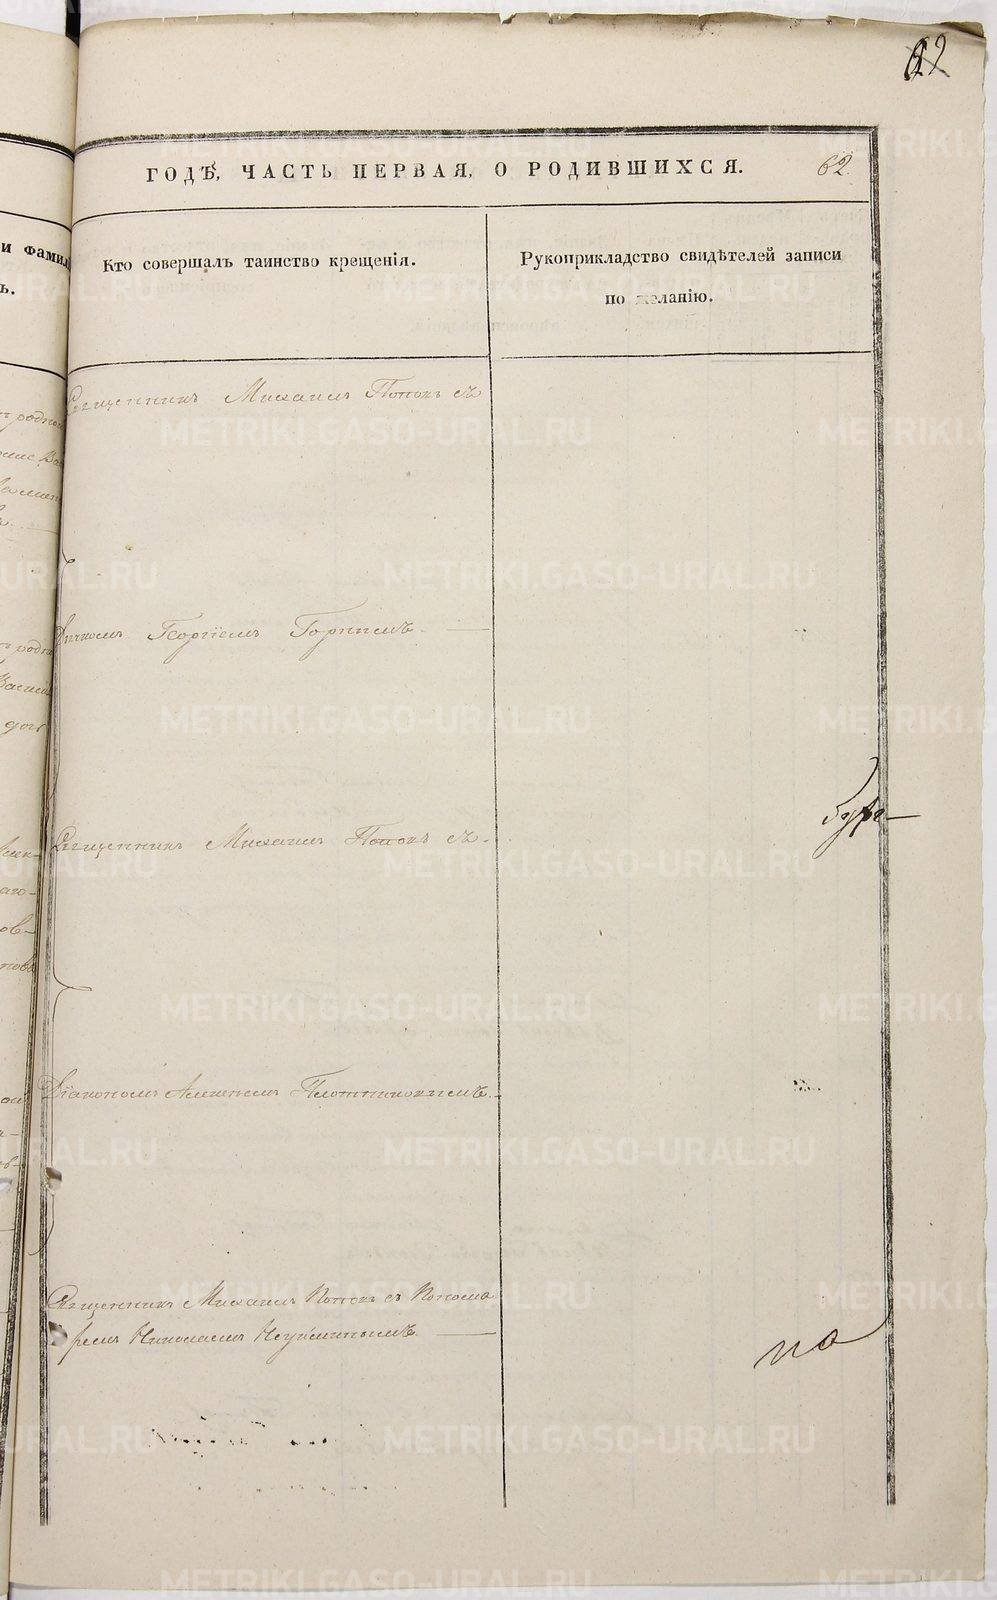 62
ГОДѢ, ЧАСТЬ ПЕРВАЯ, О РОДИВШИХСЯ. 62.
и Фамил
ь.
Кто совершалъ таинство крещенія.
Рукоприкладство свидѣтелей записи
по желанію.
Священникъ Михаилъ Поповъ съ
Дьякономъ Георгіемъ Горнымъ.
Священникъ Михаилъ Поповъ съ
Діакономъ Алексѣемъ Плотниковымъ.
Священникъ Михаилъ Поповъ съ Понома
ремъ Николаемъ Неуйминымъ.
на
METRIKI.GASO-URAL.RU